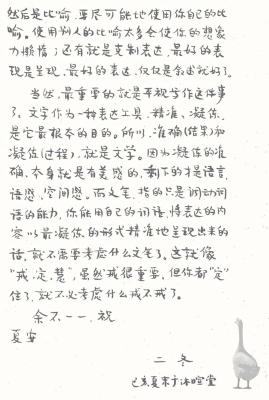 然后是比喻，要尽可能地使用你自己的比
喻。使用别人的比喻太多会使你的想象
力懒惰；还有就是克制表达，最好的表
现是呈现，最好的表达，仅仅是叙述就好了。
当然，最重要的就是平视写作这件事
了。文字作为一种表达工具，精准、凝练，
是它最根本的目的。所以，准确(结果)和
凝练(过程)，就是文学。因为凝练的准
确，本身就是有美感的，剩下的才是语言、
语感、空间感。而文笔，指的只是调动词
语的能力，你能用自己的词语，将表达的内
容以最凝练的形式精准地呈现出来的
话，就不需要考虑什么文笔了。这就像
“戒、定、慧”，虽然戒很重要，但你都“定”
住了，就不必考虑什么戒不戒了。
余不一一，祝
夏安
二冬
己亥夏末于沐暄堂